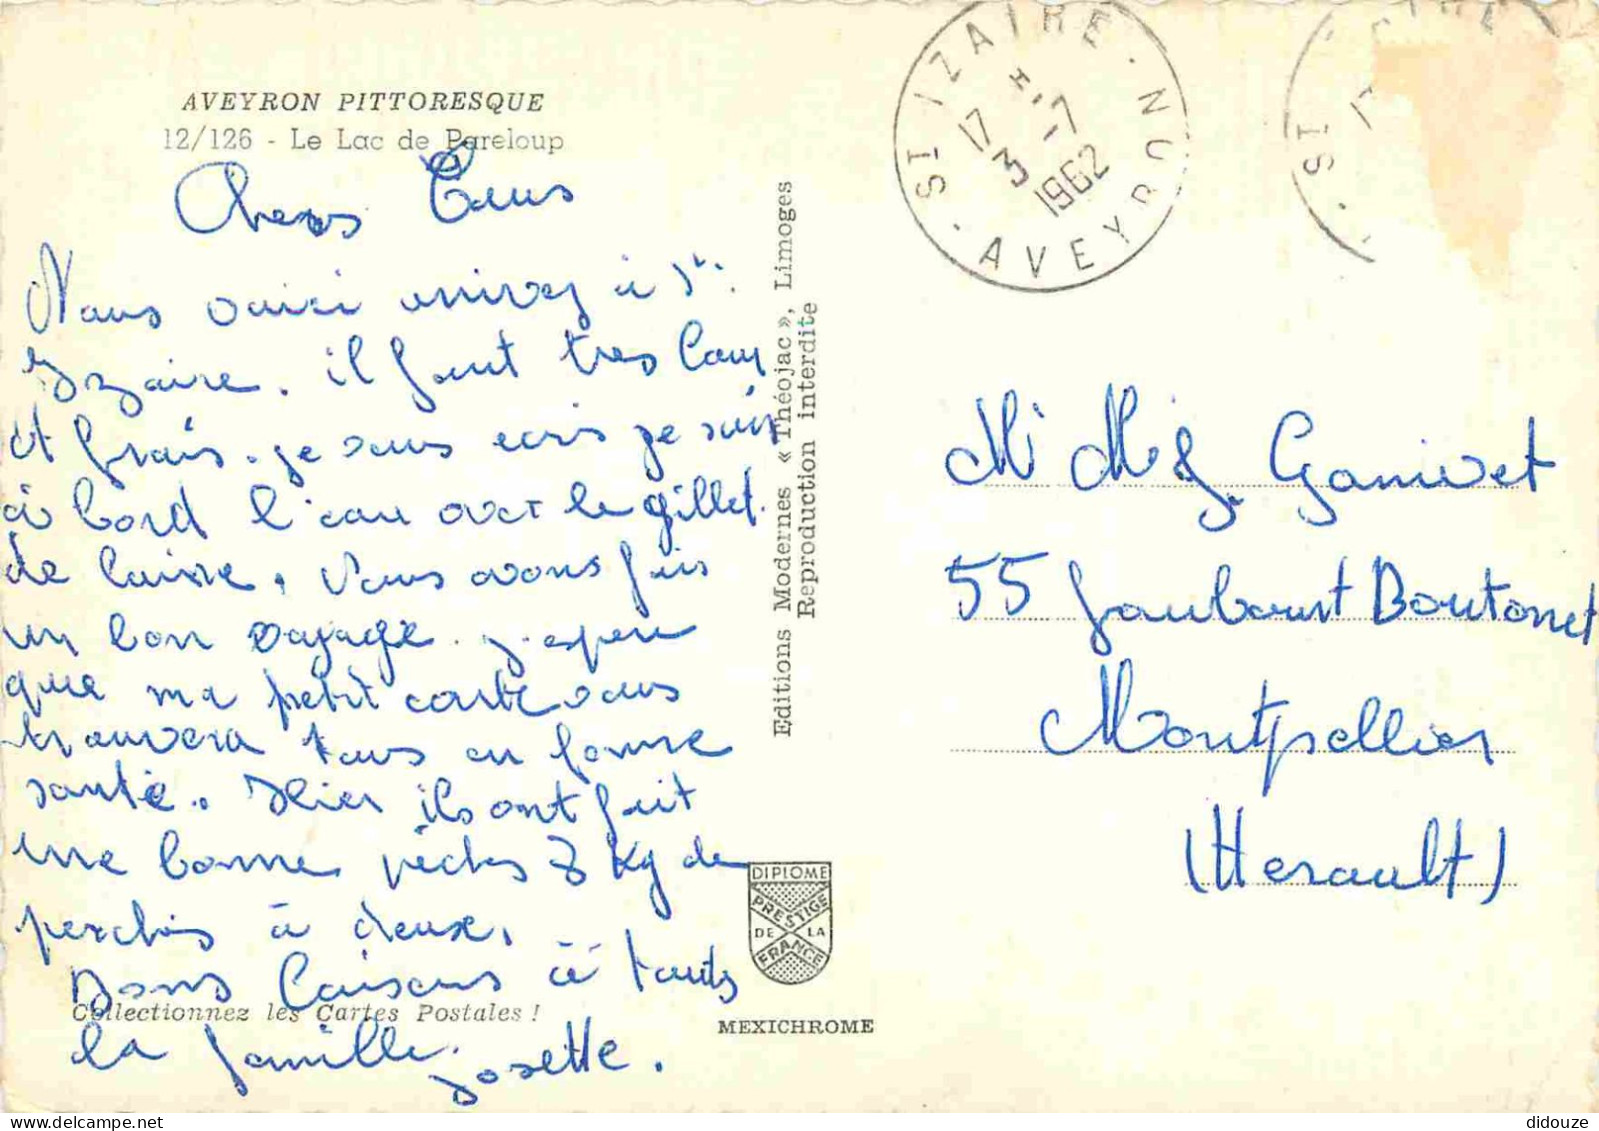 AVEYRON PITTORESQUE
12/126 - Le Lac de Pareloup
Chers Tous
Nous voici arrivez à St.
Yzaire. il faut tres lour
et frais. je vous ecris je suis
à bord l'eau avec le gillet
de laine. Nous avons fais
un bon voyage. j'espere
que ma petit carte vous
trouvera tous en forme
santé. Hier ils ont fait
une bonne pêches 7 kg de
perches à deux.
Bons baisers à touts
la famille. Josette.
Collectionnez les Cartes Postales !
Editions Modernes « Théojac », Limoges
Reproduction interdite
DIPLOME
PRESTIGE
DE LA
FRANCE
MEXICHROME
ST IZAIRE
17 H.
3 - 7
1962
AVEYRON
ST
Mr Ganivet
55 faubourt Boutonnet
Montpellier
(Herault)
didouze